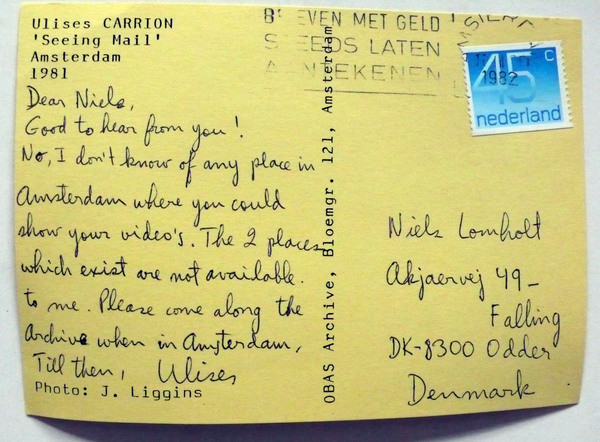 Ulises CARRION
'Seeing Mail'
Amsterdam
1981
Dear Niels,
Good to hear from you!
No, I don't know of any place in
Amsterdam where you could
show your video's. The 2 places
which exist are not available
to me. Please come along the
Archive when in Amsterdam,
Till then, Ulises
Photo: J. Liggins
OBAS Archive, Bloemgr. 121, Amsterdam
EVEN MET GELD
LATEN
1982
45 c
nederland
Niels Lomholt
Akjaervej 49-
Falling
DK-8300 Odder
Denmark